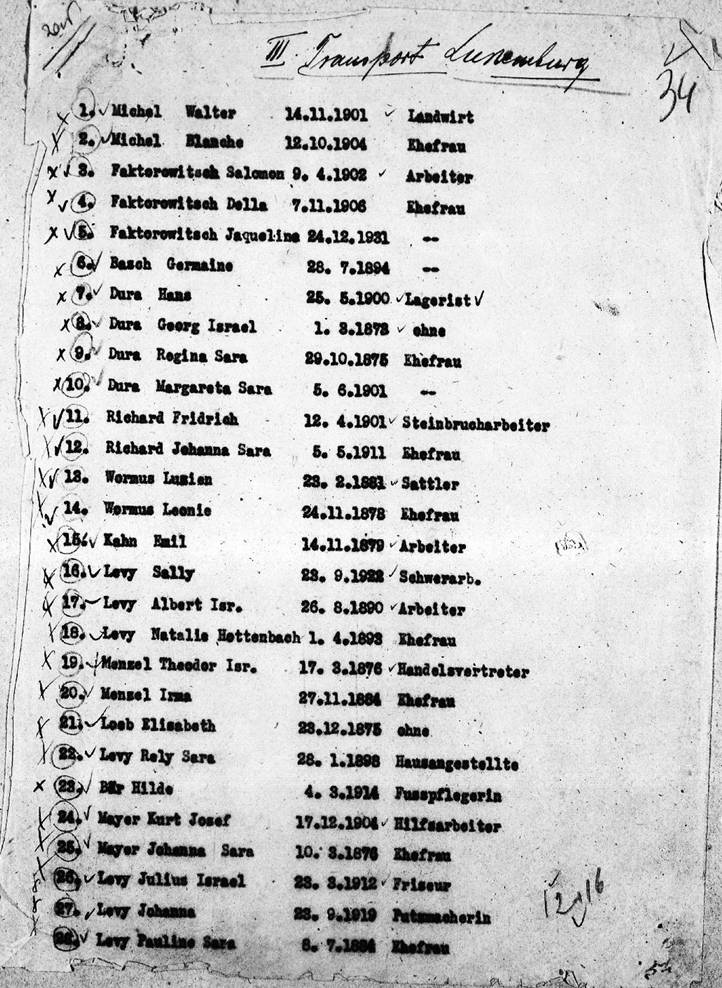 III. Transport Luxemburg
34
1. Michel Walter 14.11.1901 Landwirt
2. Michel Blanche 12.10.1904 Ehefrau
3. Faktorowitsch Salomon 9. 4.1902 Arbeiter
4. Faktorowitsch Della 7.11.1906 Ehefrau
5. Faktorowitsch Jaqueline 24.12.1931 --
6. Basch Germaine 28. 7.1894 --
7. Dura Hans 25. 5.1900 Lagerist
8. Dura Georg Israel 1. 3.1873 ohne
9. Dura Regina Sara 29.10.1875 Ehefrau
10. Dura Margareta Sara 5. 6.1901 --
11. Richard Fridrich 12. 4.1901 Steinbrucharbeiter
12. Richard Johanna Sara 5. 5.1911 Ehefrau
13. Wormus Luzien 23. 2.1881 Sattler
14. Wormus Leonie 24.11.1878 Ehefrau
15. Kahn Emil 14.11.1879 Arbeiter
16. Levy Sally 23. 9.1922 Schwerarb.
17. Levy Albert Isr. 26. 8.1890 Arbeiter
18. Levy Natalie Hettenbach 1. 4.1893 Ehefrau
19. Menzel Theodor Isr. 17. 3.1876 Handelsvertreter
20. Menzel Irma 27.11.1884 Ehefrau
21. Loeb Elisabeth 23.12.1875 ohne
22. Levy Rely Sara 28. 1.1898 Hausangestellte
23. Bär Hilde 4. 3.1914 Fusspflegerin
24. Mayer Kurt Josef 17.12.1904 Hilfsarbeiter
25. Mayer Johanna Sara 10. 3.1876 Ehefrau
26. Levy Julius Israel 23. 3.1912 Friseur
27. Levy Johanna 23. 9.1919 Putzmacherin
28. Levy Pauline Sara 7.1884 Ehefrau
12 16